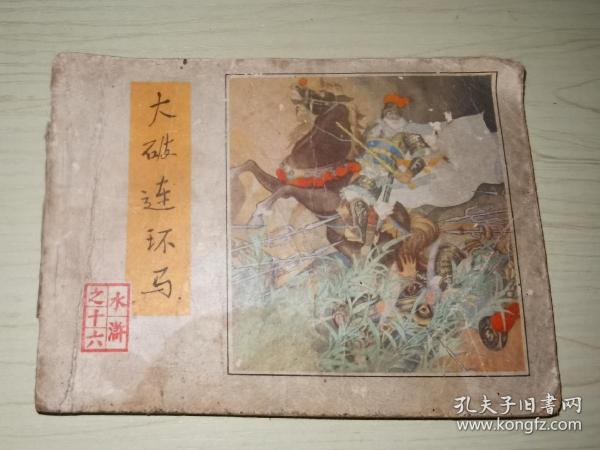 大破连环马
水浒
之十六
孔夫子旧書网
www.kongfz.com